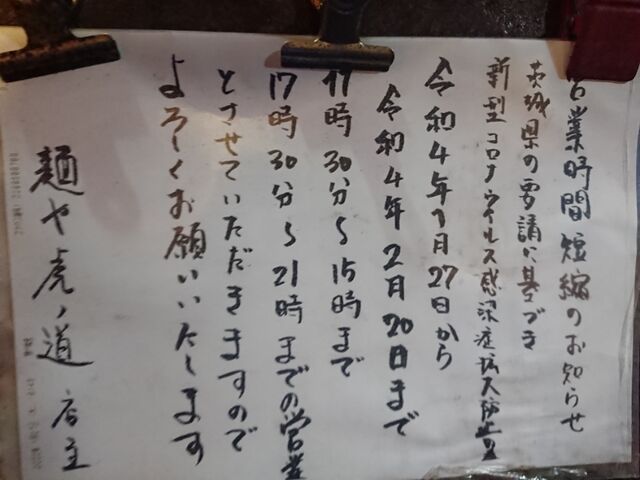 営業時間短縮のお知らせ
茨城県の要請に基づき
新型コロナウイルス感染症拡大防止の為
令和4年1月27日から
令和4年2月20日まで
11時30分〜15時まで
17時30分〜21時までの営業
とさせていただきますので
よろしくお願いいたします
麺や虎ノ道 店主